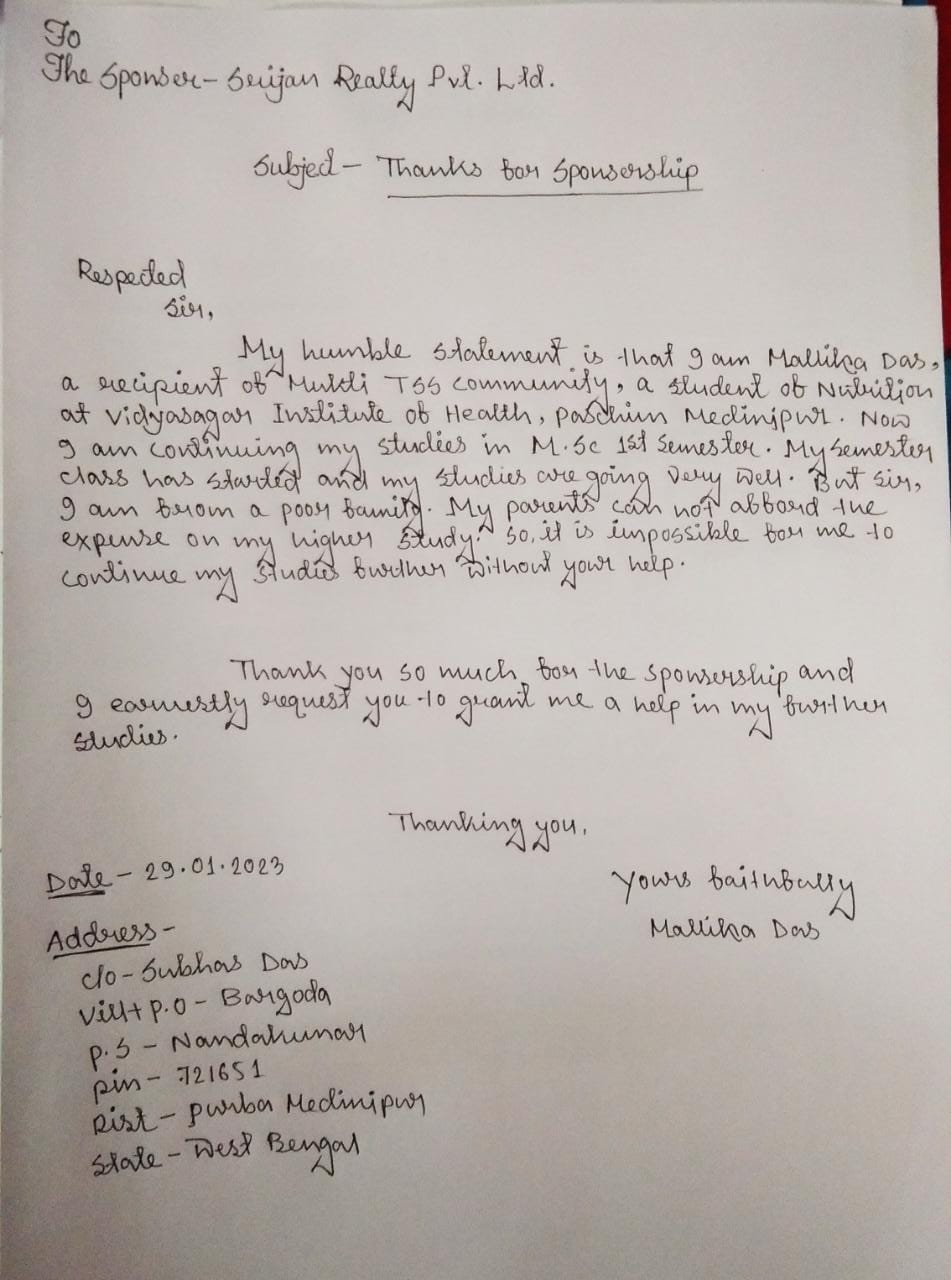 To
The Sponser- Srijan Realty Pvt. Ltd.
Subject - Thanks for Sponsership
Respected
Sir,
My humble statement is that I am Mallika Das,
a recipient of Mukti TSS community, a student of Nutrition
at Vidyasagar Institute of Health, Paschim Medinipur. Now
I am continuing my studies in M.Sc 1st Semester. My Semester
class has started and my studies are going very well. But Sir,
I am from a poor family. My parents can not afford the
expense on my higher study. So, it is impossible for me to
continue my studies further without your help.
Thank you so much for the sponsership and
I earnestly request you to grant me a help in my further
studies.
Thanking you,
Date - 29.01.2023
Yours faithfully
Mallika Das
Address -
c/o - Subhas Das
Vill+ P.O - Bargoda
P.S - Nandakumar
Pin - 721651
Dist - Purba Medinipur
State - West Bengal